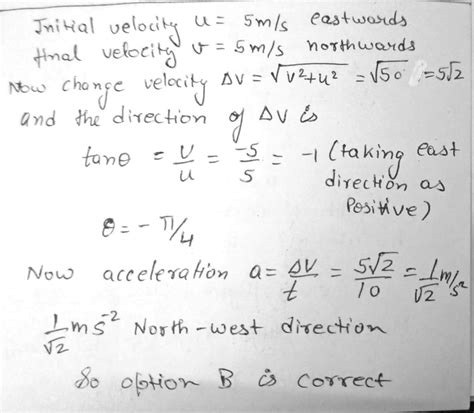 Initial velocity u = 5m/s eastwards
final velocity v = 5m/s northwards
Now change velocity Δv = √v²+u² = √50 = 5√2
and the direction of Δv is
tanθ = v/u = -5/5 = -1 (taking east
direction as
Positive)
θ = - π/4
Now acceleration a = Δv/t = 5√2/10 = 1/√2 m/s²
1/√2 ms⁻² North-west direction
So option B is correct